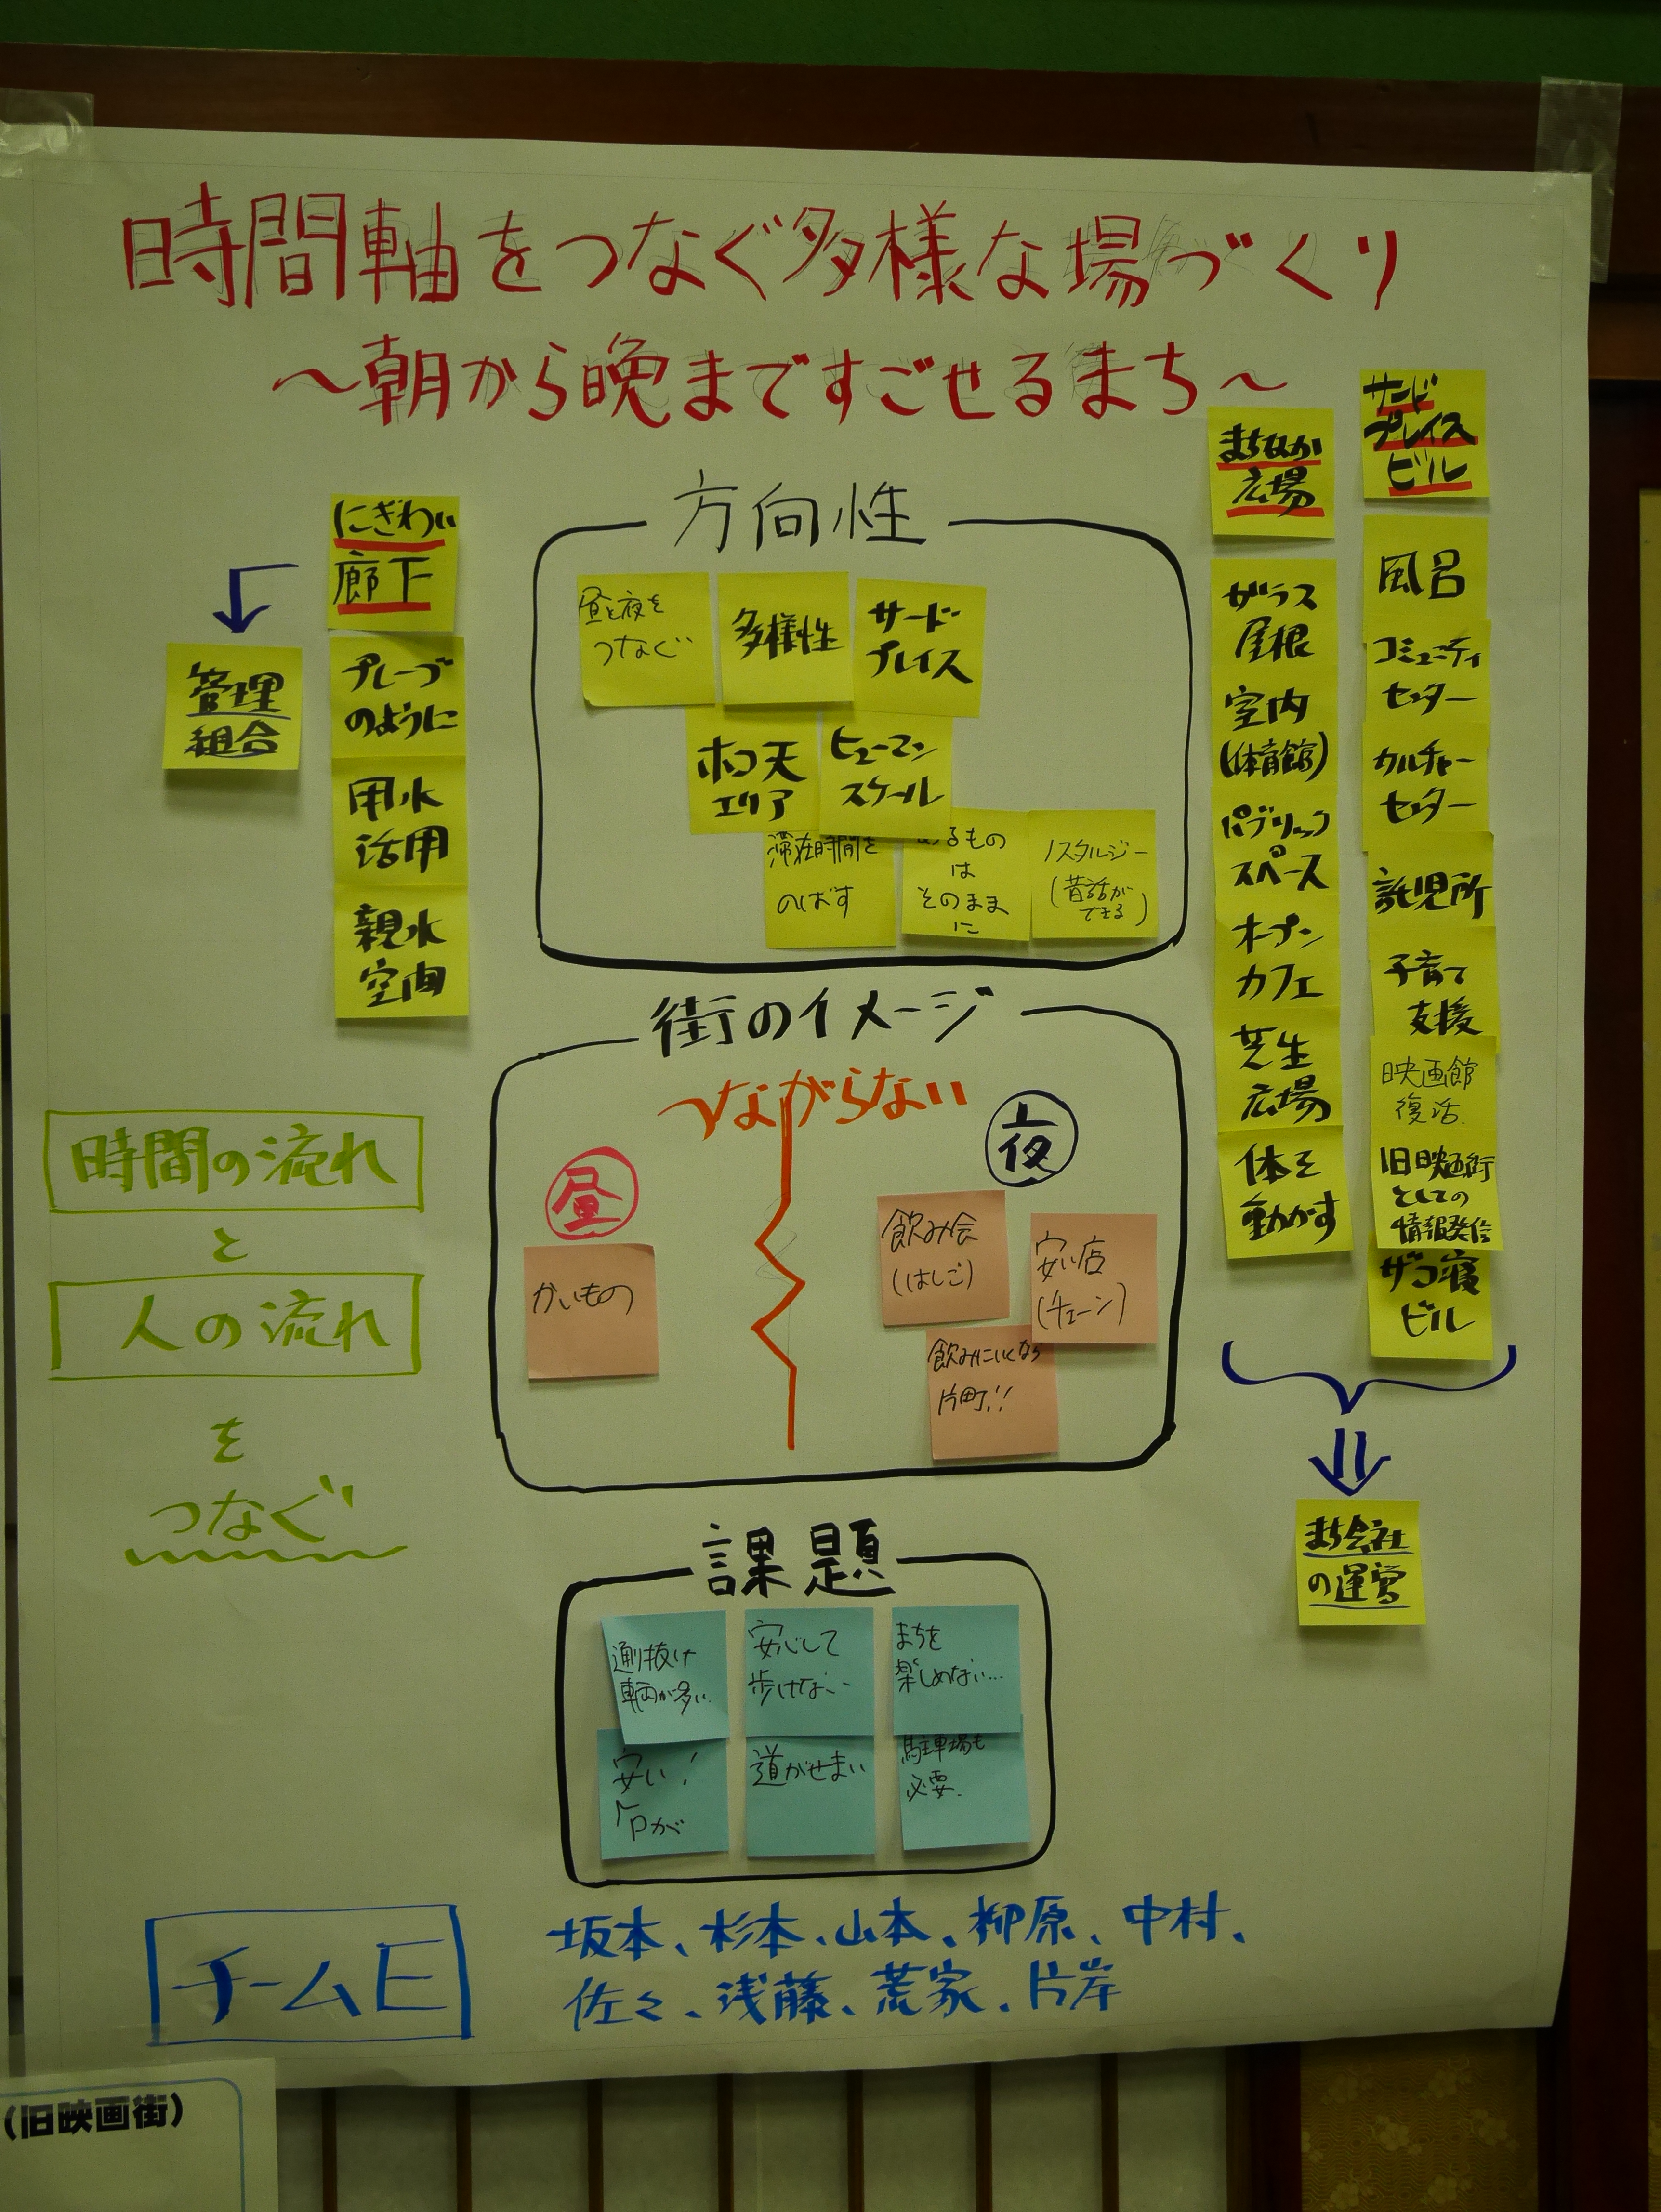 時間軸をつなぐ多様な場づくり
〜朝から晩まですごせるまち〜
にぎわい
廊下
プレーゴ
のように
用水
活用
親水
空間
管理
組合
方向性
昼と夜を
つなぐ
多様性
サード
プレイス
ホコ天
エリア
ヒューマン
スケール
滞在時間を
のばす
あるもの
は
そのまま
に
ノスタルジー
(昔話が
できる)
まちなか
広場
ガラス
屋根
室内
(体育館)
パブリック
スペース
オープン
カフェ
芝生
広場
体を
動かす
サード
プレイス
ビル
風呂
コミュニティ
センター
カルチャー
センター
託児所
子育て
支援
映画館
復活.
旧映画街
としての
情報発信
ザコ寝
ビル
まち会社
の運営
街のイメージ
つながらない
昼
かいもの
夜
飲み会
(はしご)
安い店
(チェーン)
飲みにいくなら
片町!!
時間の流れ
と
人の流れ
を
つなぐ
課題
通り抜け
車両が多い.
安心して
歩けない…
まちを
楽しめない…
安い!
Pが
道がせまい
駐車場も
必要.
チームE
坂本、杉本、山本、柳原、中村、
佐々、浅藤、荒家、片岸
(旧映画街)